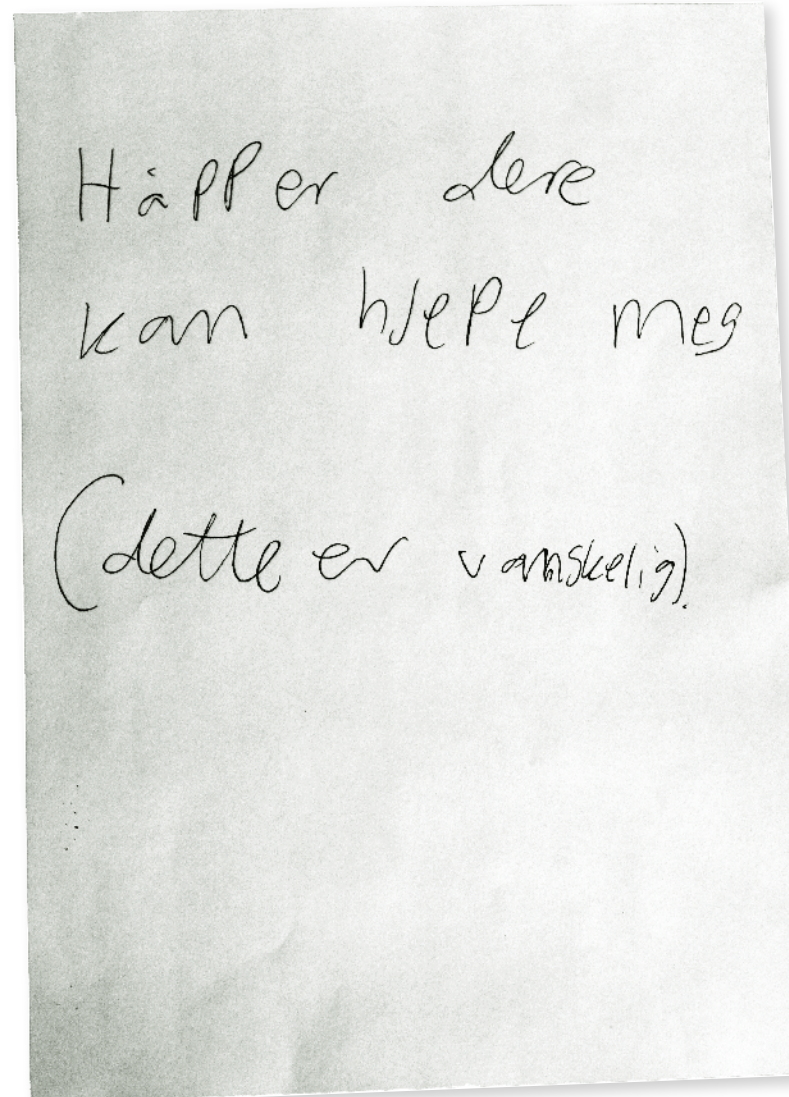 Håpper dere
kan hjepe meg
(dette er vanskelig).